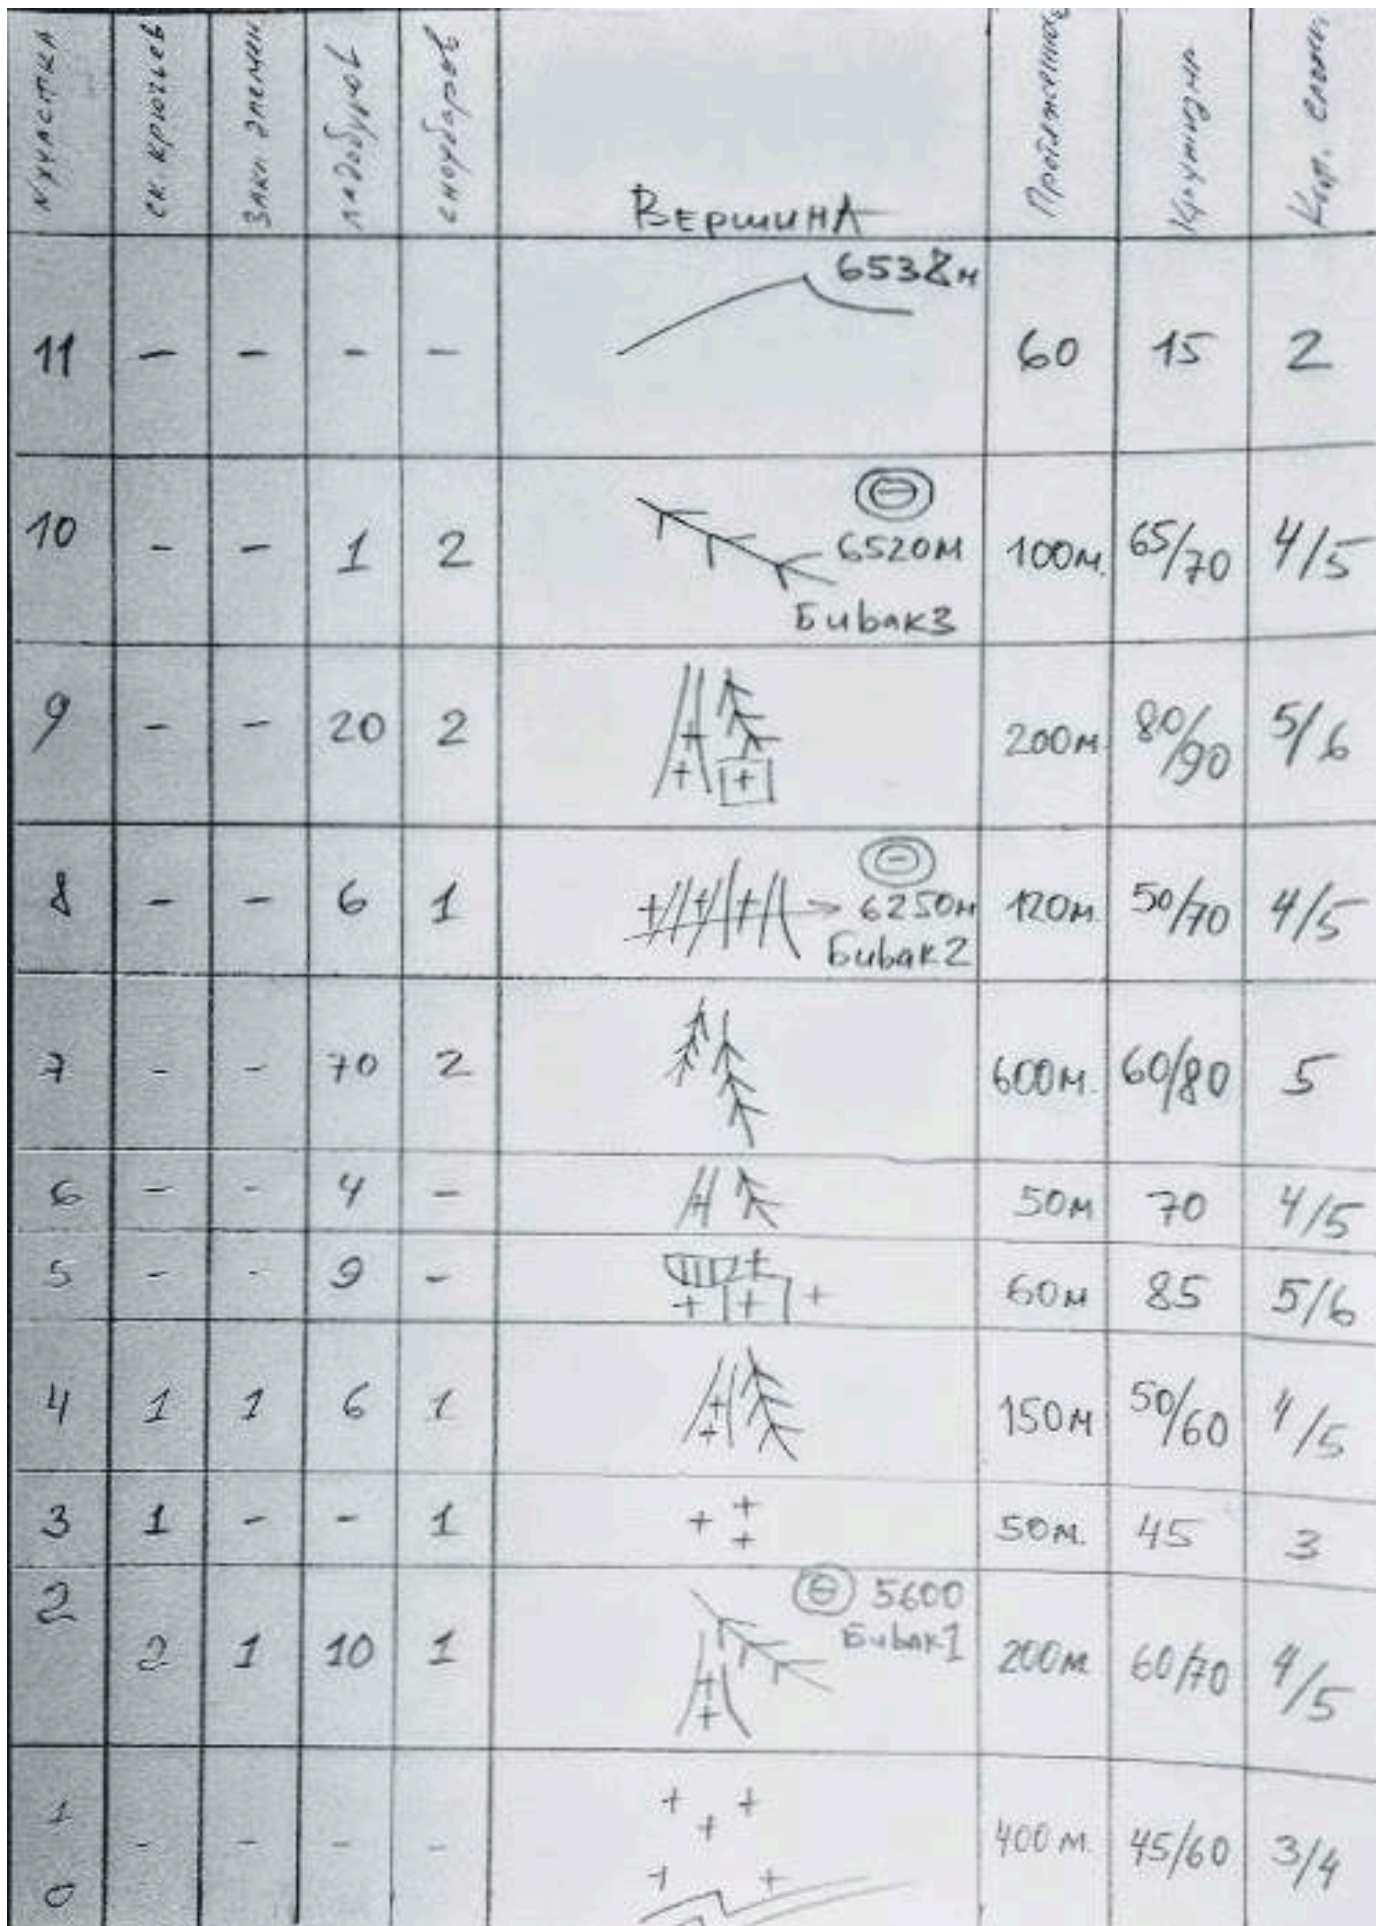 N участка | ск. крючьев | закл. элемен. | ледобуров | сноубаров | Вершина | Протяженность | Крутизна | Кат. сложн.
11 | – | – | – | – | 6538м | 60 | 15 | 2
10 | – | – | 1 | 2 | 6520м Бивак3 | 100м. | 65/70 | 4/5
9 | – | – | 20 | 2 | 200м. | 80/90 | 5/6
8 | – | – | 6 | 1 | 6250м Бивак2 | 120м. | 50/70 | 4/5
7 | – | – | 70 | 2 | 600м. | 60/80 | 5
6 | – | – | 4 | – | 50м | 70 | 4/5
5 | – | – | 9 | – | 60м | 85 | 5/6
4 | 1 | 1 | 6 | 1 | 150м | 50/60 | 4/5
3 | 1 | – | – | 1 | 50м. | 45 | 3
2 | 2 | 1 | 10 | 1 | 5600 Бивак1 | 200м | 60/70 | 4/5
1 | – | – | – | – | 400м. | 45/60 | 3/4
0